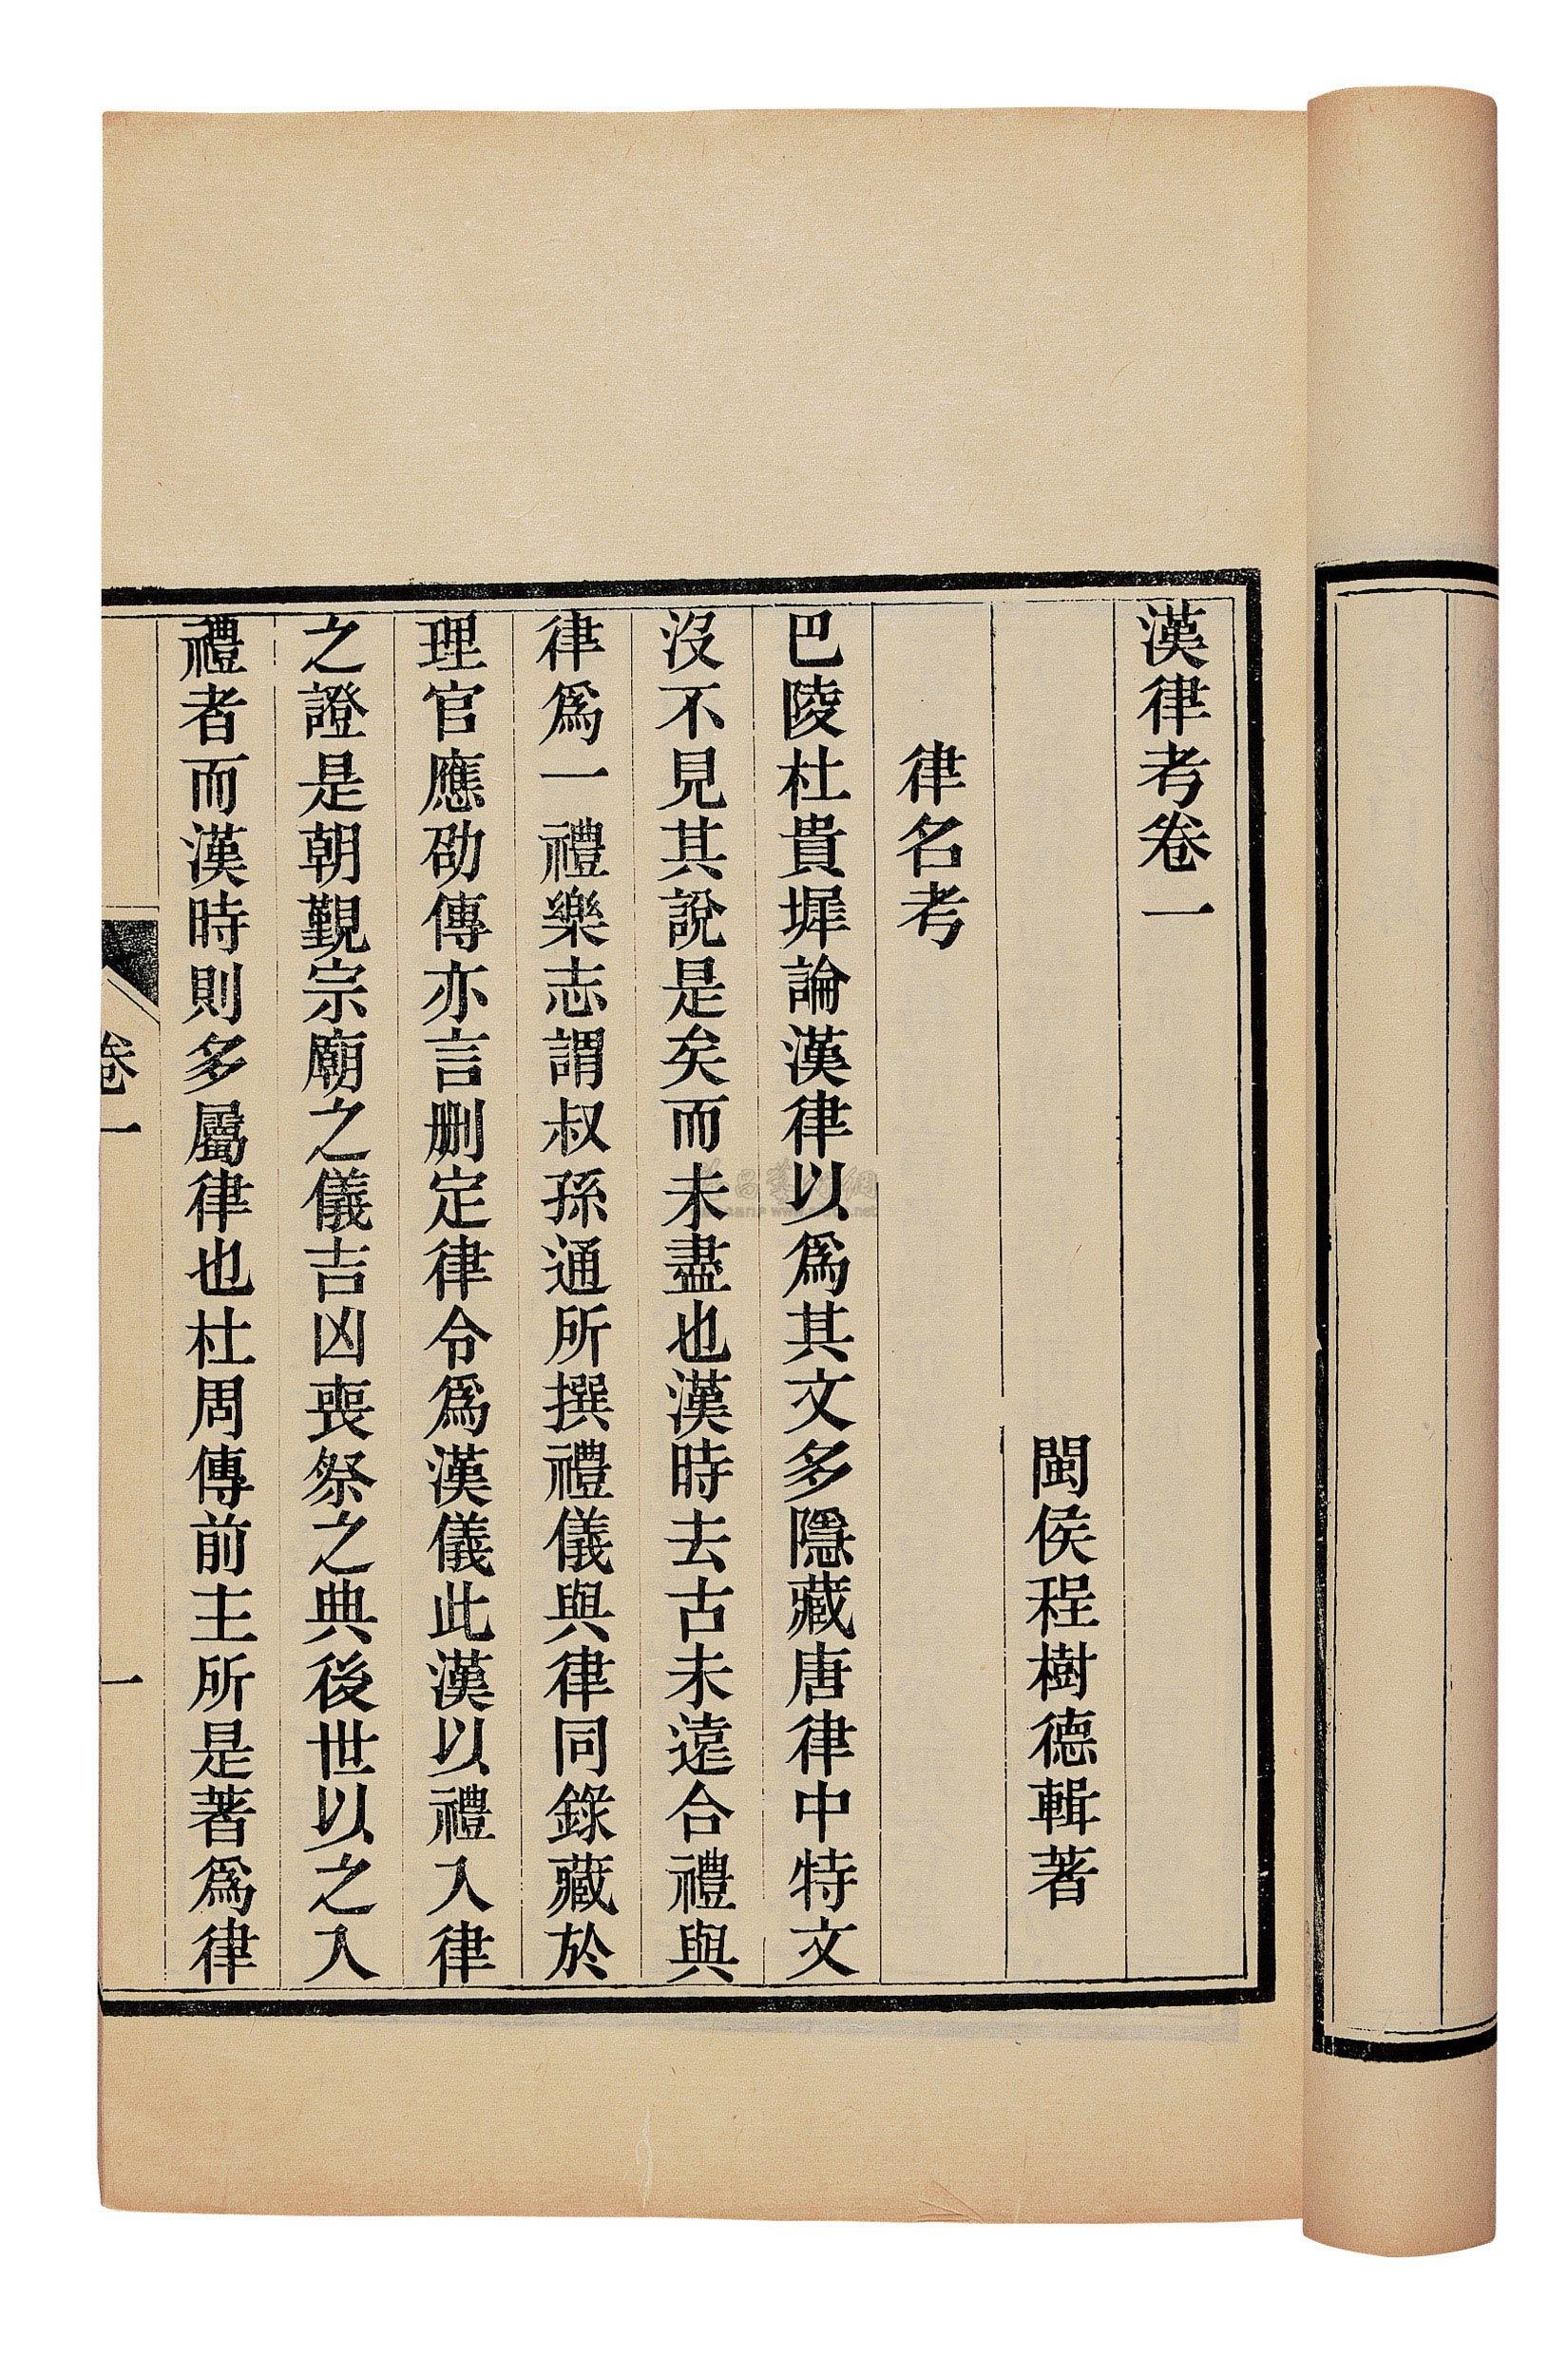 漢律考卷一
閩侯程樹德輯著
律名考
巴陵杜貴墀論漢律以爲其文多隱藏唐律中特文
沒不見其說是矣而未盡也漢時去古未遠合禮與
律爲一禮樂志謂叔孫通所撰禮儀與律同錄藏於
理官應劭傳亦言删定律令爲漢儀此漢以禮入律
之證是朝覲宗廟之儀吉凶喪祭之典後世以之入
禮者而漢時則多屬律也杜周傳前主所是著爲律
卷一
一